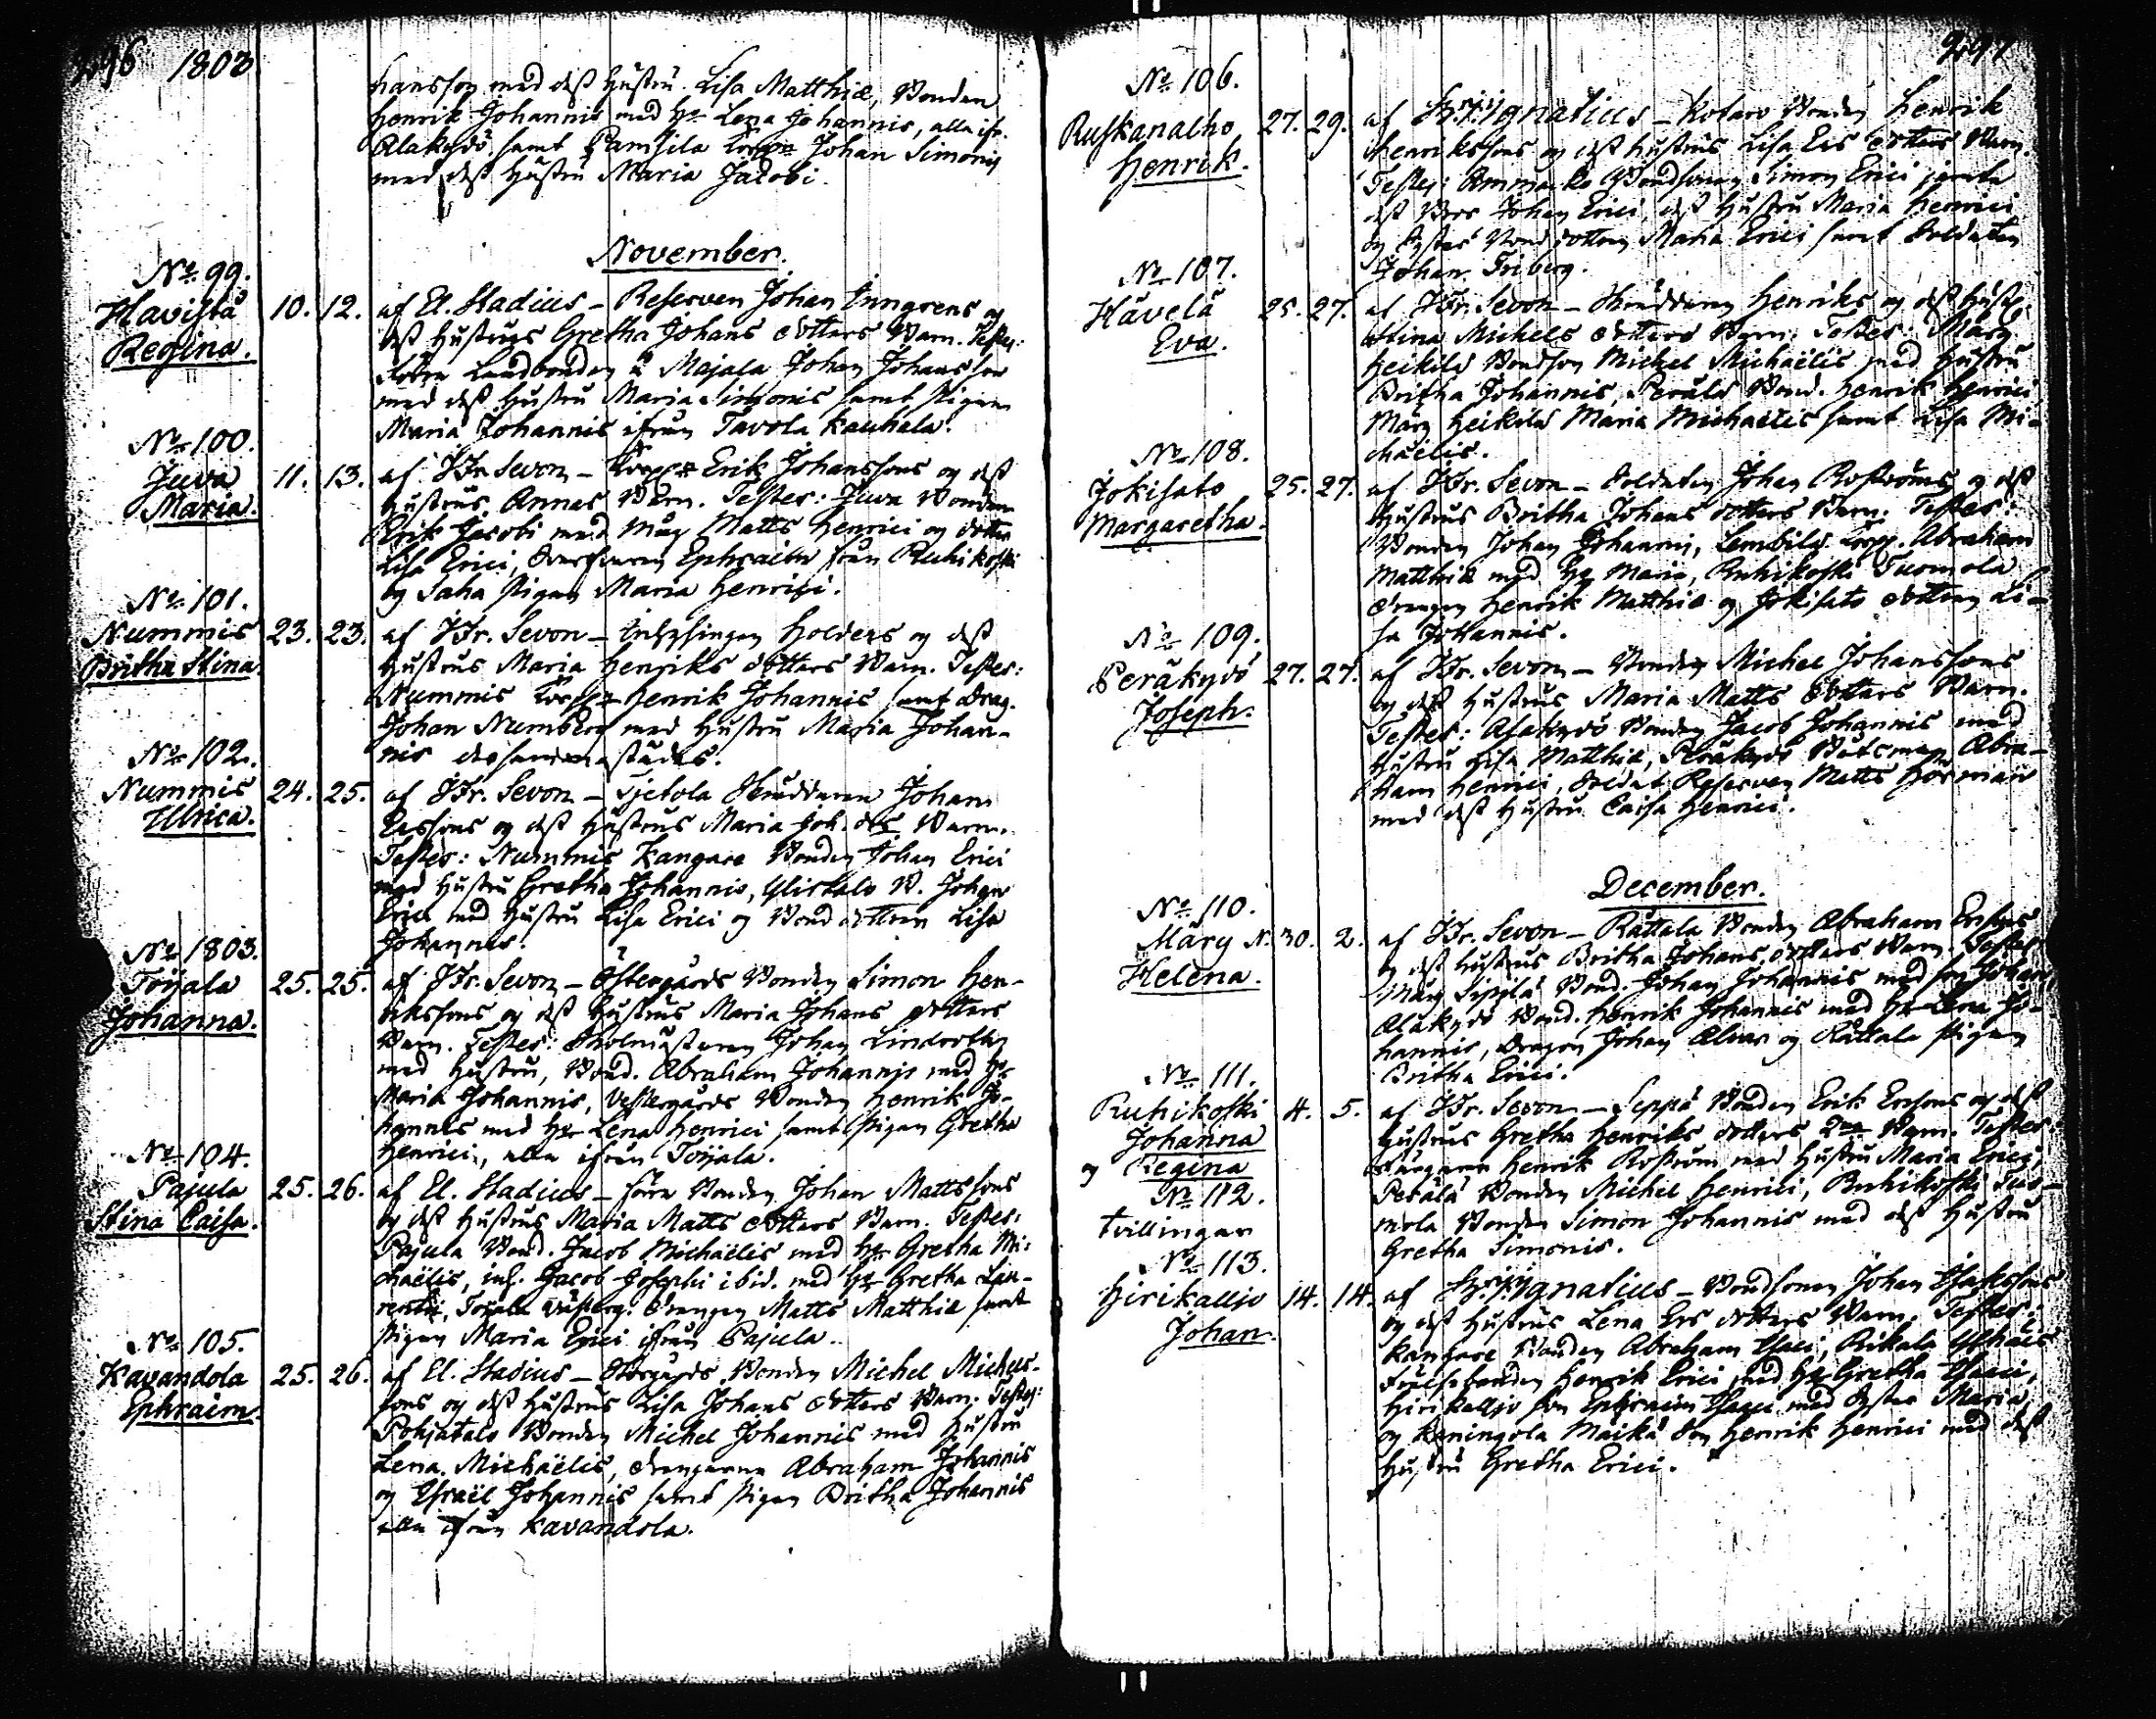 296 1803
hansson med dess hustru Lisa Matthiæ, Bonden
Henrik Johannis med H:u Lena Johannis, alla ifr.
Alakyrö, samt Pansila Torpn Johan Simonis
med dess hustru Maria Jacobi.
November.
No 99.
Havista
Regina.
10. 12. af El. Stadius – Reserven Johan Enngrens og
dess hustrus Gretha Johans dotters Barn. Testes:
förra Landbonden å Majala Johan Johansson
med dess hustru Maria Simonis samt Pigan
Maria Johannis ifrån Tavola Kauhala.
No 100.
Juva
Maria.
11. 13. af HHr Sevon – Torp:n Erik Johanssons og dess
hustrus Annas Barn. Testes: Juva Bonden
Erik Jacobi med Måg Matts Henrici og dotter
Lisa Erici, Ephraim från Ruhikoski
og Saha Pigan Maria Henrici.
No 101.
Nummis
Britha Stina.
23. 23. af HHr. Sevon – Inhysingen Holders og dess
hustrus Maria Henriks dotters Barn. Testes:
Nummis Torp:n Henrik Johannis samt Drag.
Johan Numberg med hustru Maria Johan-
nis dersammastädes.
No 102.
Nummis
Ulrica.
24. 25. af HHr. Sevon – Sjetola Skräddaren Johan
Erssons og dess hustrus Maria Joh. drs Barn.
Testes: Nummis Kangare Bonden Johan Erici
med hustru Gretha Johannis, Ylistalo B. Johan
Erici med hustru Lisa Erici og Bonddottren Lisa
Johannis.
No 1803.
Töijala
Johanna.
25. 25. af HHr. Sevon – Östergårds Bonden Simon Hen-
rikssons og dess hustrus Maria Johans dotters
Barn. Testes: Skolmästaren Johan Lindroth
med hustru, Bond. Abraham Johannis med H:u
Maria Johannis, Vestergårds Bonden Henrik Jo-
hannis med H:u Lena Henrici samt Pigan Gretha
Henrici, alla ifrån Töijala.
No 104.
Pajula
Stina Caisa.
25. 26. af El. Stadius – förra Bonden Johan Mattssons
og dess hustrus Maria Matts dotters Barn. Testes:
Pajula Bond. Jacob Michaëlis med H:u Gretha Mi-
chaëlis, inh. Jacob Josephi ibid. med H:u Gretha Lau-
rentii, Töijala Västerg. Drengen Matts Matthiæ samt
Pigan Maria Erici ifrån Pajula.
No 105.
Kavandola
Ephraim.
25. 26. af El. Stadius – Storgårds Bonden Michel Michels-
sons og dess hustrus Lisa Johans dotters Barn. Testes:
Pohjatalo Bonden Michel Johannis med hustru
Lena Michaëlis, drengarne Abraham Johannis
og Israël Johannis samt Pigan Britha Johannis
alla ifrån Kavandola.
297
No 106.
Ruskanalho
Henrik.
27. 29. af Ignatius – Kotaro Bonden Henrik
Henrikssons og dess hustrus Lisa Ers dotters Barn.
Testes: Ammarko Bondsonen Simon Erici jemte
dess Bror Johan Erici, dess hustru Maria Henrici
og Syster Bond dottren Maria Erici samt Soldaten
Johan Friberg.
No 107.
Hävelä
Eva.
25. 27. af HHr. Sevon – Skräddaren Henriks og dess hust.
Stina Michels dotters Barn. Testes: Märy
Heikilä Bondson Michel Michaëlis med hustru
Britha Johannis, Perälä Bond. Henrik Henrici,
Märy Heikilä Maria Michaëlis samt Lisa Mi-
chaëlis.
No 108.
Jokisato
Margaretha.
25. 27. af HHr. Sevon – Soldaten Johan Roströms og dess
hustrus Britha Johans dotters Barn. Testes:
Bonden Johan Johannis, Sembilä Torp. Abraham
Matthiæ med H:u Maria, Ruhikoski Tuomola
Drengen Henrik Matthiæ og Jokisato dottren Li-
sa Johannis.
No 109.
Peräkyrö
Joseph.
27. 27. af HHr. Sevon – Bonden Michel Johanssons
og dess hustrus Maria Matts dotters Barn.
Testes: Alakyrö Bonden Jacob Johannis med
hustru Lisa Matthiæ, Peräkyrö Båtsman Abra-
ham Henrici, Soldat Reserven Matts Hörman
med dess hustru Caisa Henrici.
December.
No 110.
Märy
Helena.
N. 30. 2. af HHr. Sevon – Rättala Bonden Abraham Erssons
og dess hustrus Britha Johans dotters Barn. Testes:
Märy Sippila Bond. Johan Johannis med son Johan,
Alakyrö Bond. Henrik Johannis med H:u Lena Jo-
hannis, Dragon Johan Alvar og Rättala Pigan
Britha Erici.
No 111.
Ruhikoski
Johanna
og Regina
No 112.
tvillingar
4. 5. af HHr. Sevon – Seppä Bonden Erik Erssons og dess
hustrus Gretha Henriks dotters 2ne Barn. Testes:
Färgare Henrik Roström med hustru Maria Erici,
Perälä Bonden Michel Henrici, Ruhikoski Tuo-
mola Bonden Simon Johannis med dess hustru
Gretha Simonis.
No 113.
Hirikallio
Johan.
14. 14. af Ignatius – Bondsonen Johan Isakssons
og dess hustrus Lena Ers dotters Barn. Testes:
Kangare Bonden Abraham Isaci, Rikala Ylhäis
Frelsebonden Henrik Erici med H:u Gretha Isaci,
Hirikallio Son Ephraim Isaci med Syster Maria,
og Koningola Maikä Son Henrik Henrici med dess
hustru Gretha Erici.